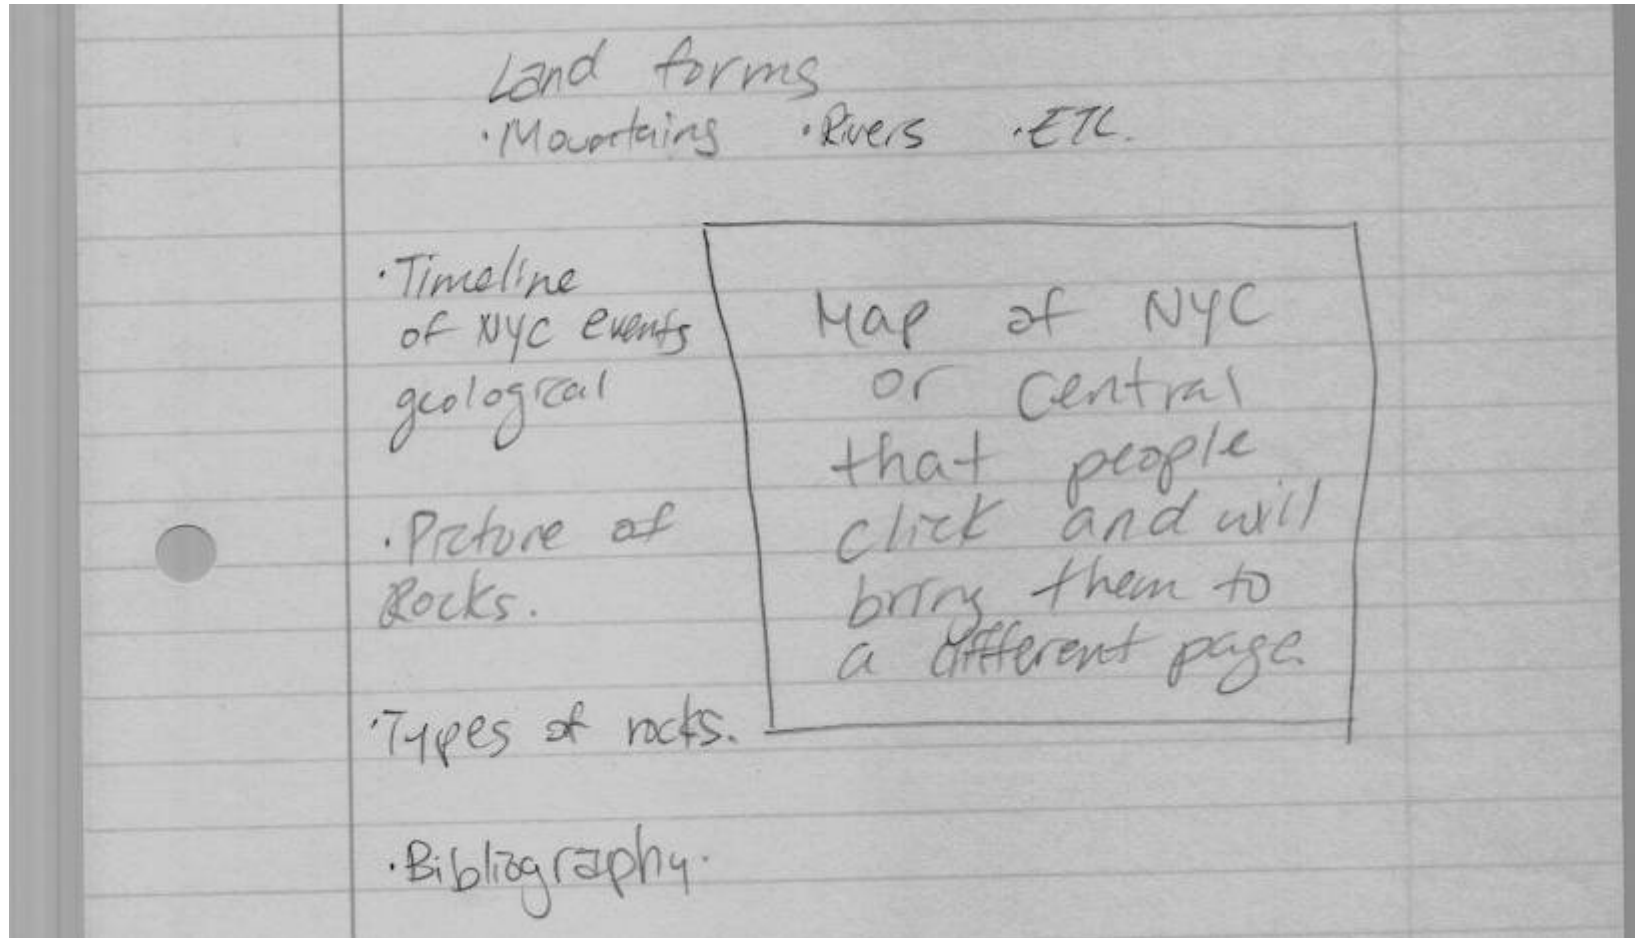 Land forms
·Mountains ·Rivers ·ETC.
·Timeline
of NYC events
geological
·Picture of
Rocks.
·Types of rocks.
·Bibliography.
Map of NYC
or Central
that people
click and will
bring them to
a different page.